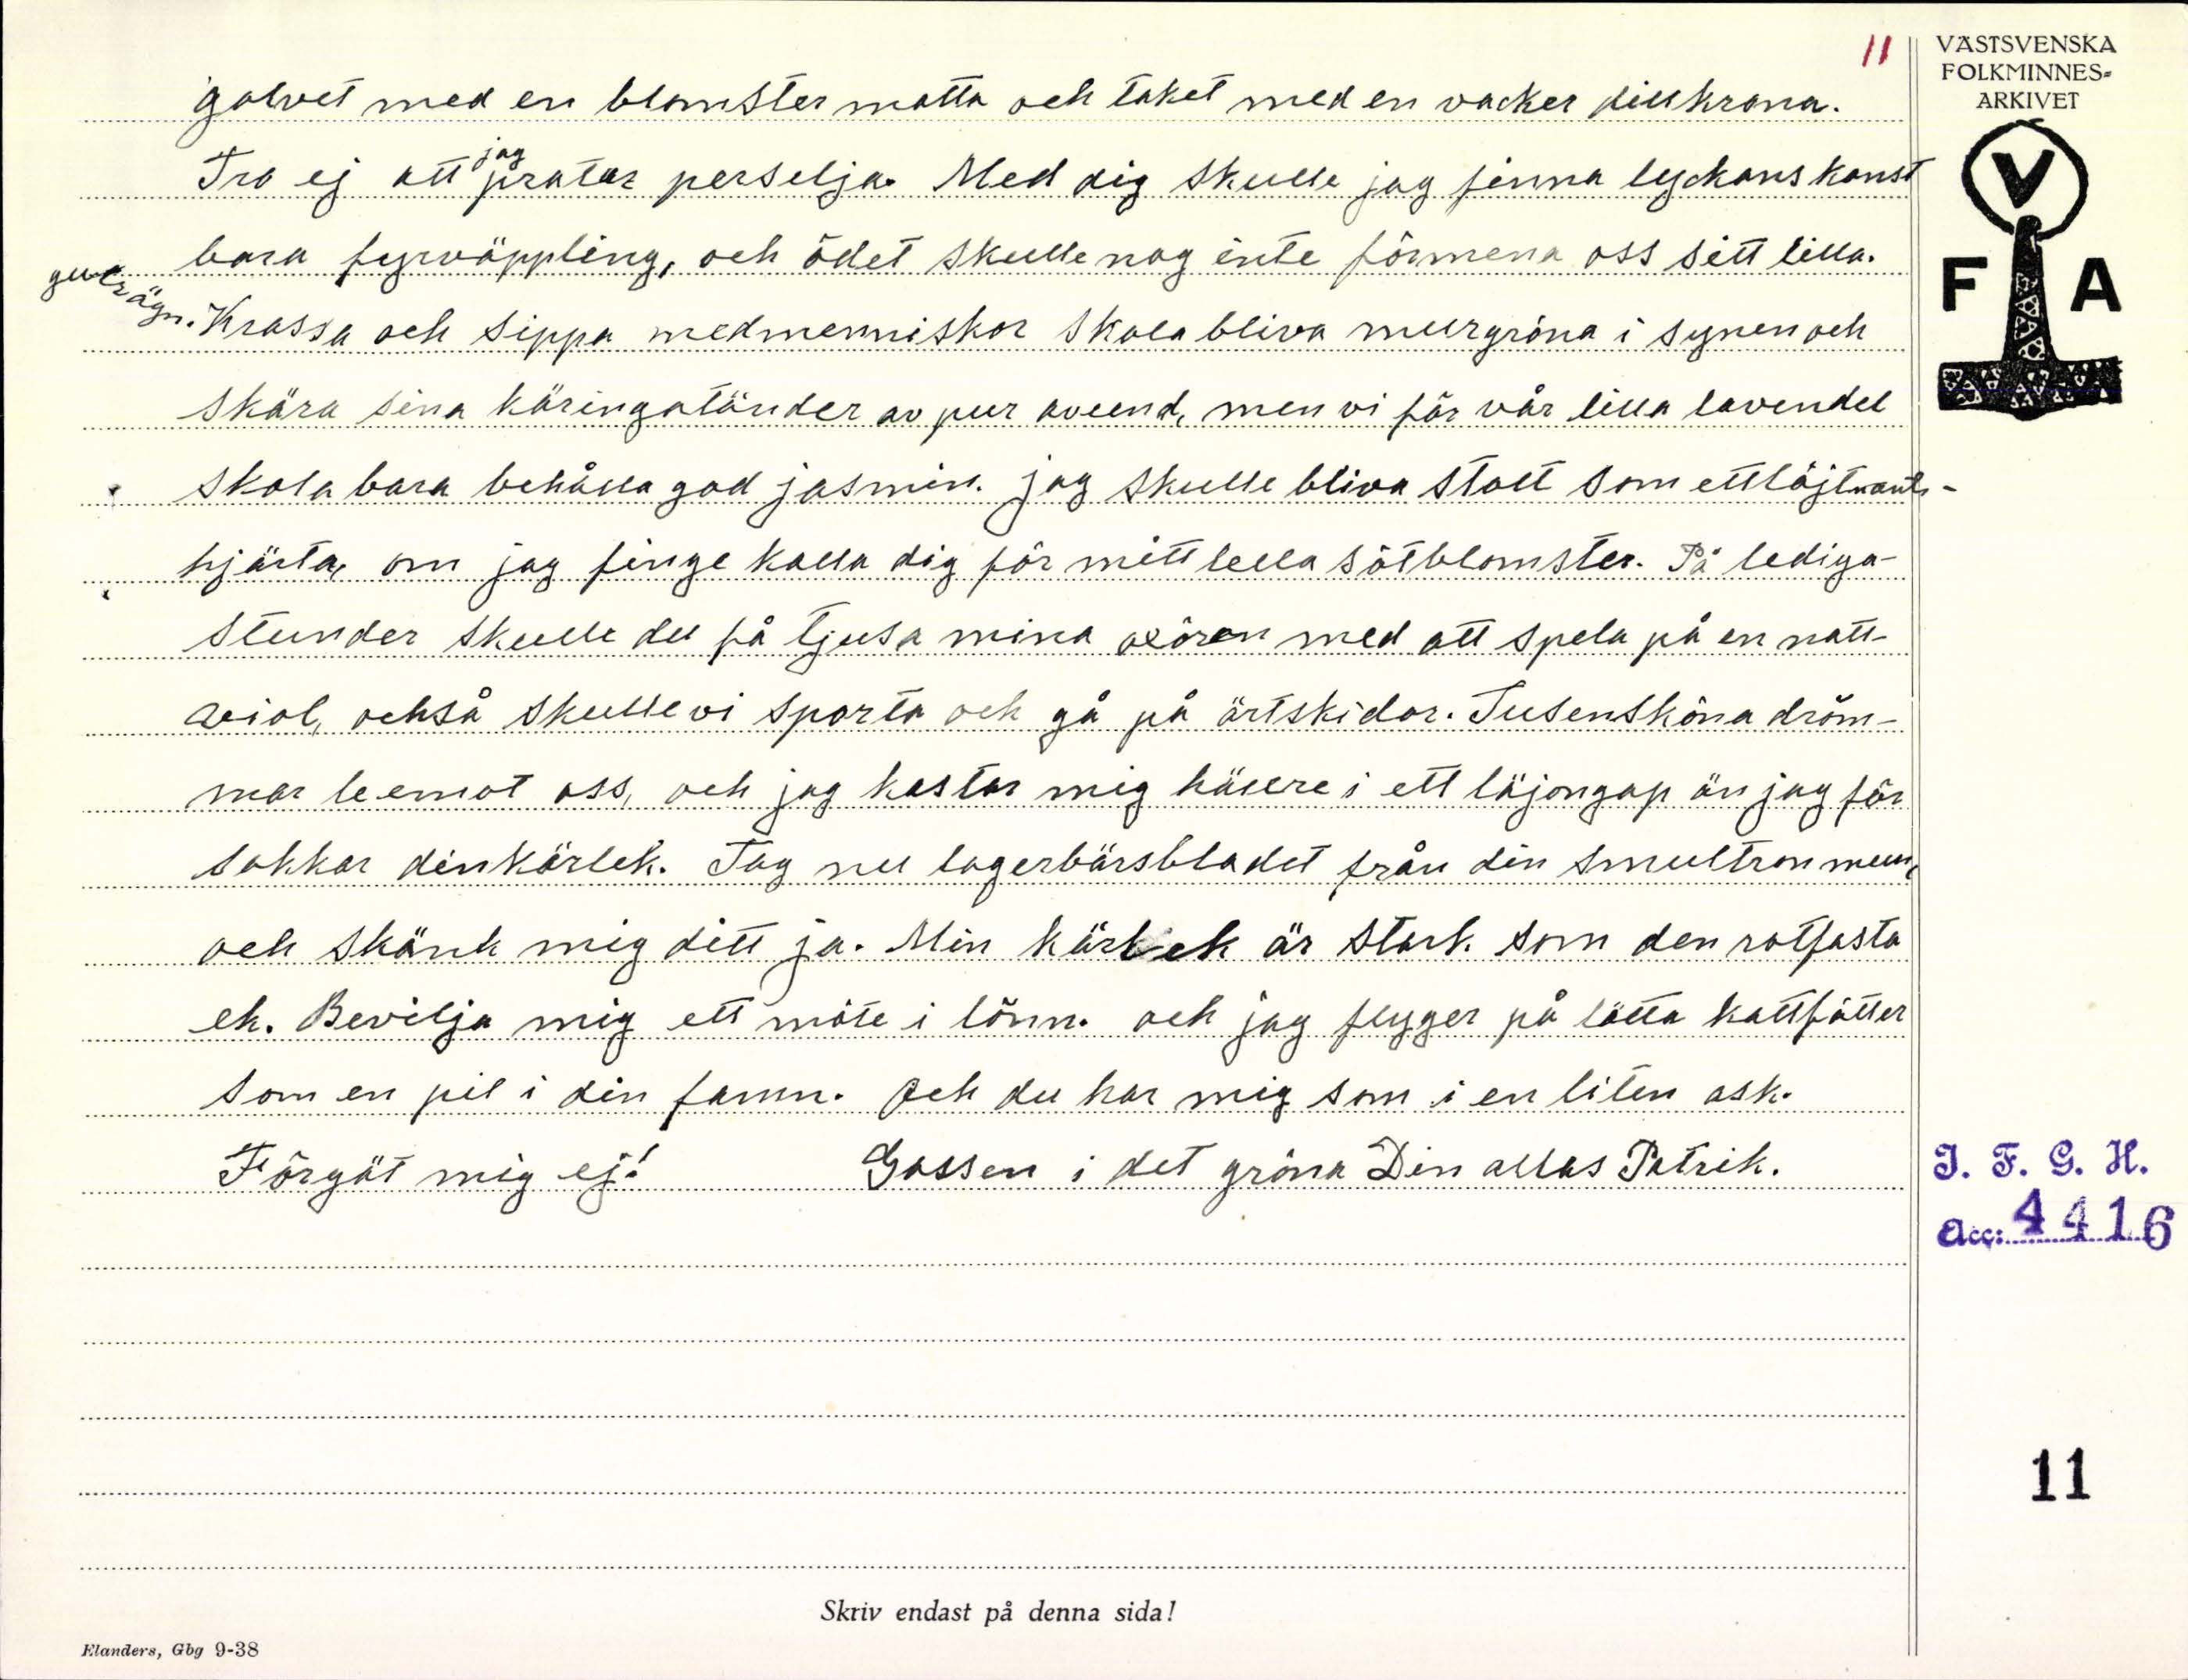 11
VÄSTSVENSKA
FOLKMINNES=
ARKIVET
V
F A
golvet med en blomstermatta och taket med en vacker dillkrona.
Tro ej att jag pratar perselja. Med dig skulle jag finna lyckans konst
bara fyrväppling, och ödet skulle nog inte förmena oss sitt lilla.
gullrägn. Krassa och sippa medmenniskor skola bliva murgröna i synen och
skära sina käringatänder av pur avund, men vi för vår lilla lavendel
skola bara behålla god jasmin. jag skulle bliva stolt som ett löjtnants-
hjärta, om jag finge kalla dig för mitt lella sötblomster. På lediga
stunder skulle du få tjusa mina oxöron med att spela på en natt-
aviol, också skulle vi sporta och gå på ärtskidor. Tusensköna dröm-
mar le emot oss, och jag kastar mig hällre i ett läjongap än jag för
sakkar din kärlek. Tag nu lagerbärsbladet från din smultronmun,
och skänk mig ditt ja. Min kärlek är stark som den rotfasta
ek. Bevilja mig ett möte i lönn. och jag flyger på lätta kattfötter
som en pil i din famn. Och du har mig som i en liten ask.
Förgät mig ej! Gossen i det gröna Din allas Patrik.
I. F. G. H.
Acc: 4416
11
Skriv endast på denna sida!
Elanders, Gbg 9-38